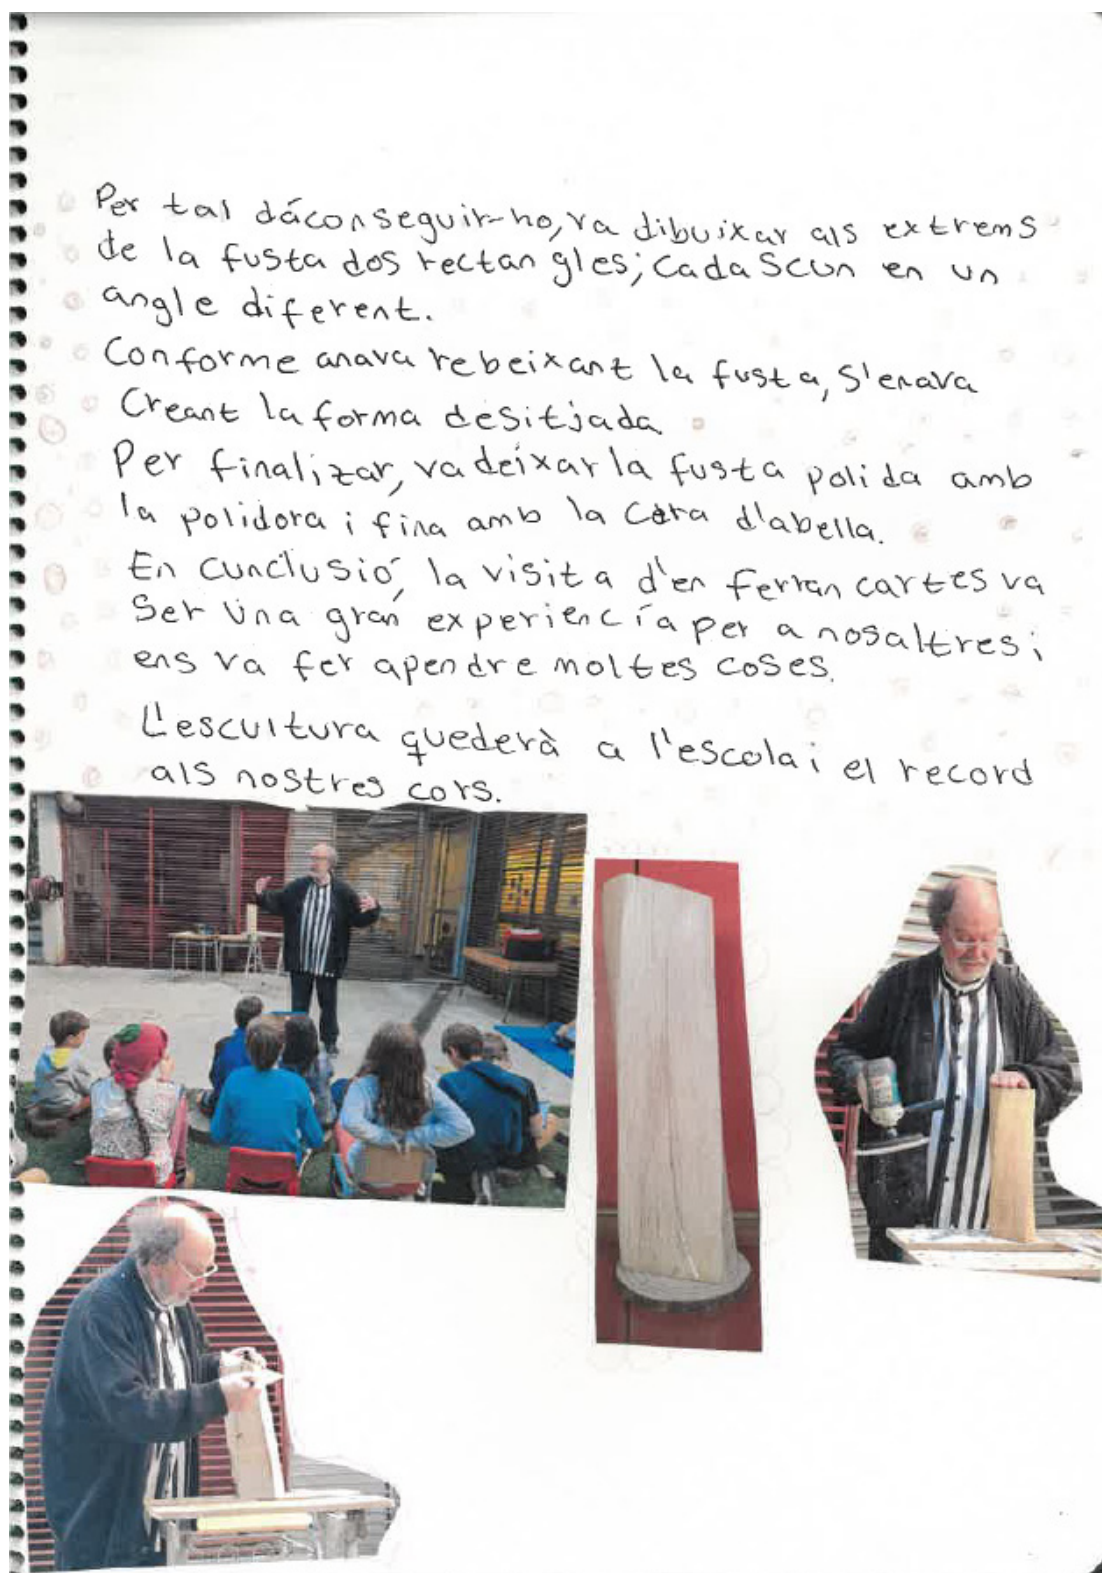 Per tal dáconseguir-ho, va dibuixar als extrems
de la fusta dos rectangles; cadascun en un
angle diferent.
Conforme anava rebeixant la fusta, s'enava
Creant la forma desitjada
Per finalizar, va deixar la fusta polida amb
la polidora i fina amb la cera d'abella.
En cunclusió, la visita d'en ferran cartes va
Ser una gran experiencía per a nosaltres i
ens va fer apendre moltes coses.
L'escultura quederà a l'escola i el record
als nostres cors.